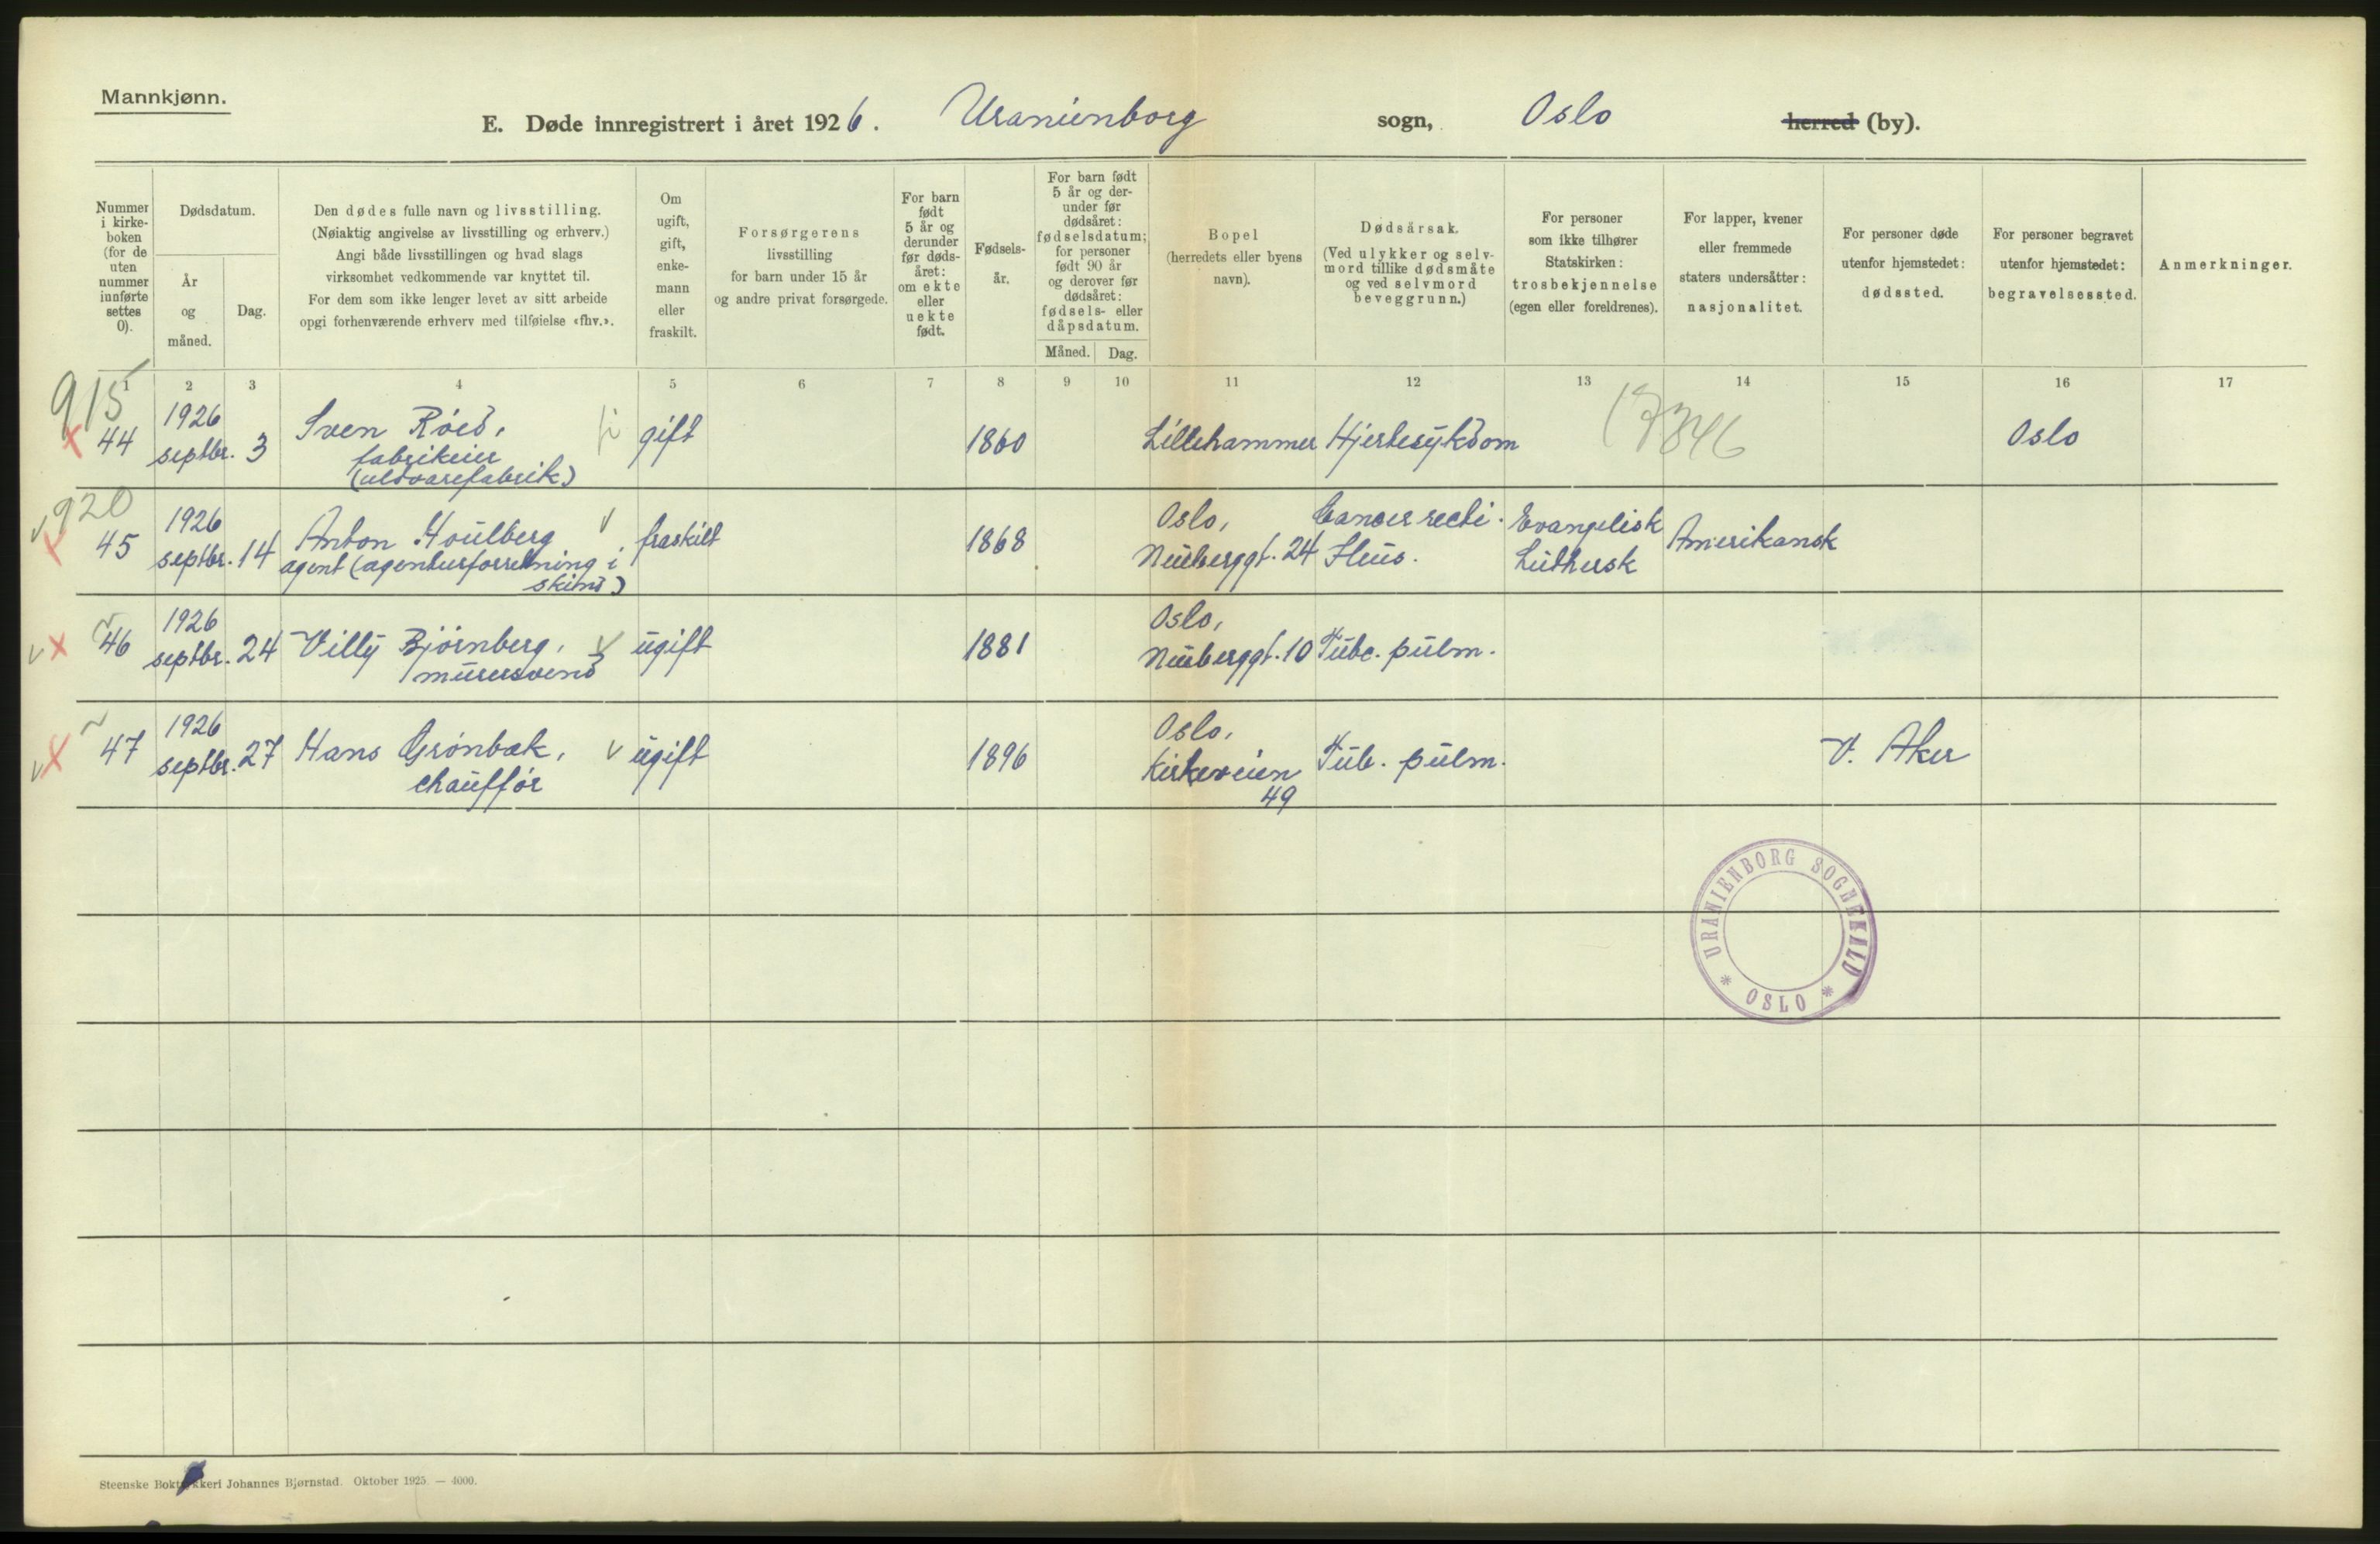 Mannkjønn.
E. Døde innregistrert i året 1926. Uranienborg sogn, Oslo herred (by).
Nummer i kirke- boken (for de uten nummer innførte settes 0).
Dødsdatum.
År og måned.
Dag.
Den dødes fulle navn og livsstilling.
(Nøiaktig angivelse av livsstilling og erhverv.)
Angi både livsstillingen og hvad slags
virksomhet vedkommende var knyttet til.
For dem som ikke lenger levet av sitt arbeide
opgi forhenværende erhverv med tilføielse «fhv.».
Om
ugift,
gift,
enke-
mann
eller
fraskilt.
Forsørgerens
livsstilling
for barn under 15 år
og andre privat forsørgede.
For barn
født
5 år og
derunder
før døds-
året:
om ekte
eller
uekte
født.
Fødsels-
år.
For barn født
5 år og der-
under før
dødsåret:
fødselsdatum;
for personer
født 90 år
og derover før
dødsåret:
fødsels- eller
dåpsdatum.
Måned. Dag.
Bopel
(herredets eller byens
navn).
Dødsårsak.
(Ved ulykker og selv-
mord tillike dødsmåte
og ved selvmord
beveggrunn.)
For personer
som ikke tilhører
Statskirken:
trosbekjennelse
(egen eller foreldrenes).
For lapper, kvener
eller fremmede
staters undersåtter:
nasjonalitet.
For personer døde
utenfor hjemstedet:
dødssted.
For personer begravet
utenfor hjemstedet:
begravelsessted.
Anmerkninger.
1 2 3 4 5 6 7 8 9 10 11 12 13 14 15 16 17
915
44 1926 septbr. 3 Sven Röed, gift 1860 Lillehammer Hjertesykdom Oslo
fabrikeier
(uldvarefabrik)
17846
920
45 1926 septbr. 14 Anton Houlberg fraskilt 1868 Oslo, Cancer recti. Evangelisk Amerikansk
agent (agenturforretning i Neuberggt. 24 Hleus. Luthersk
skind)
46 1926 septbr. 24 Villy Björnberg, ugift 1881 Oslo,
murersvend Neuberggt. 10 Tubc. pulm.
47 1926 septbr. 27 Hans Grönbæk, ugift 1896 Oslo, Tub. pulm. V. Aker
chaufför Kirkeveien
49
URANIENBORG SOGNEKALD
* OSLO *
Steenske Boktrykkeri Johannes Bjørnstad. Oktober 1925. — 4000.